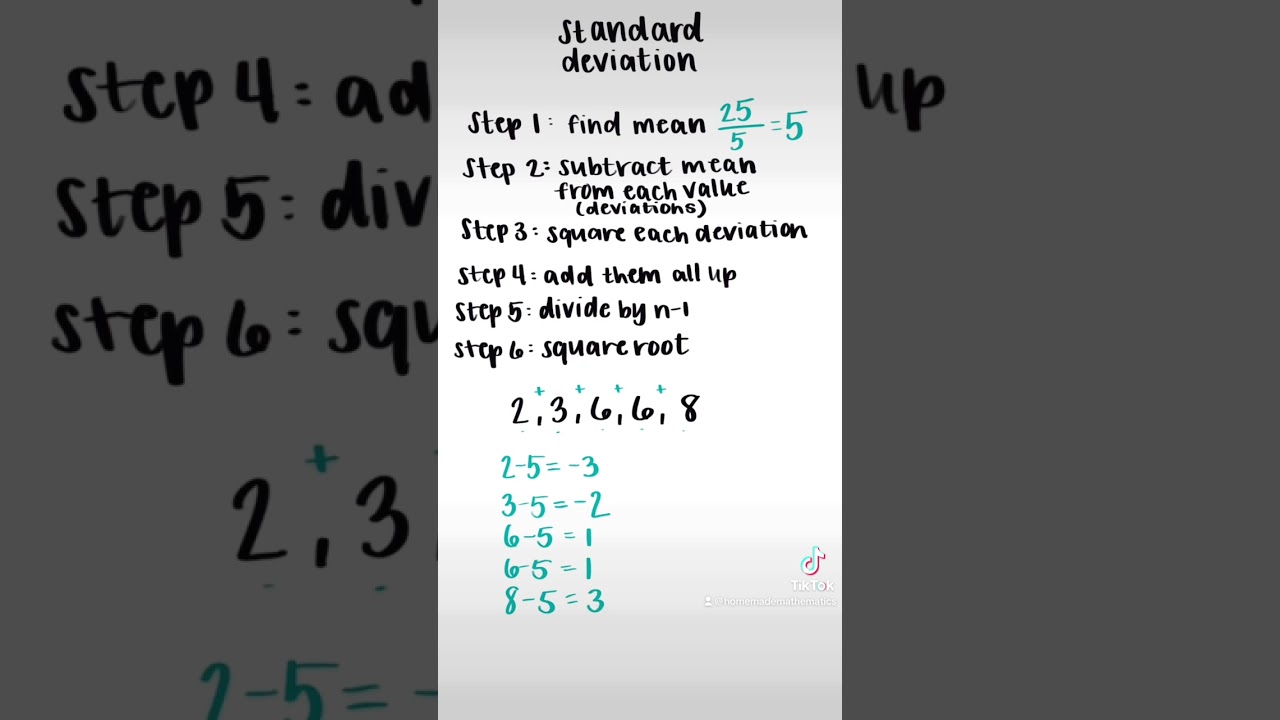 standard
deviation
step 1: find mean 25/5 = 5
step 2: subtract mean
from each value
(deviations)
step 3: square each deviation
step 4: add them all up
step 5: divide by n-1
step 6: square root
+ + + +
2, 3, 6, 6, 8
2-5= -3
3-5= -2
6-5 = 1
6-5 = 1
8-5 = 3
TikTok
@homemademathematics
step 4: ad
up
step 5: div
step 6: squ
+
2, 3
2-5= -